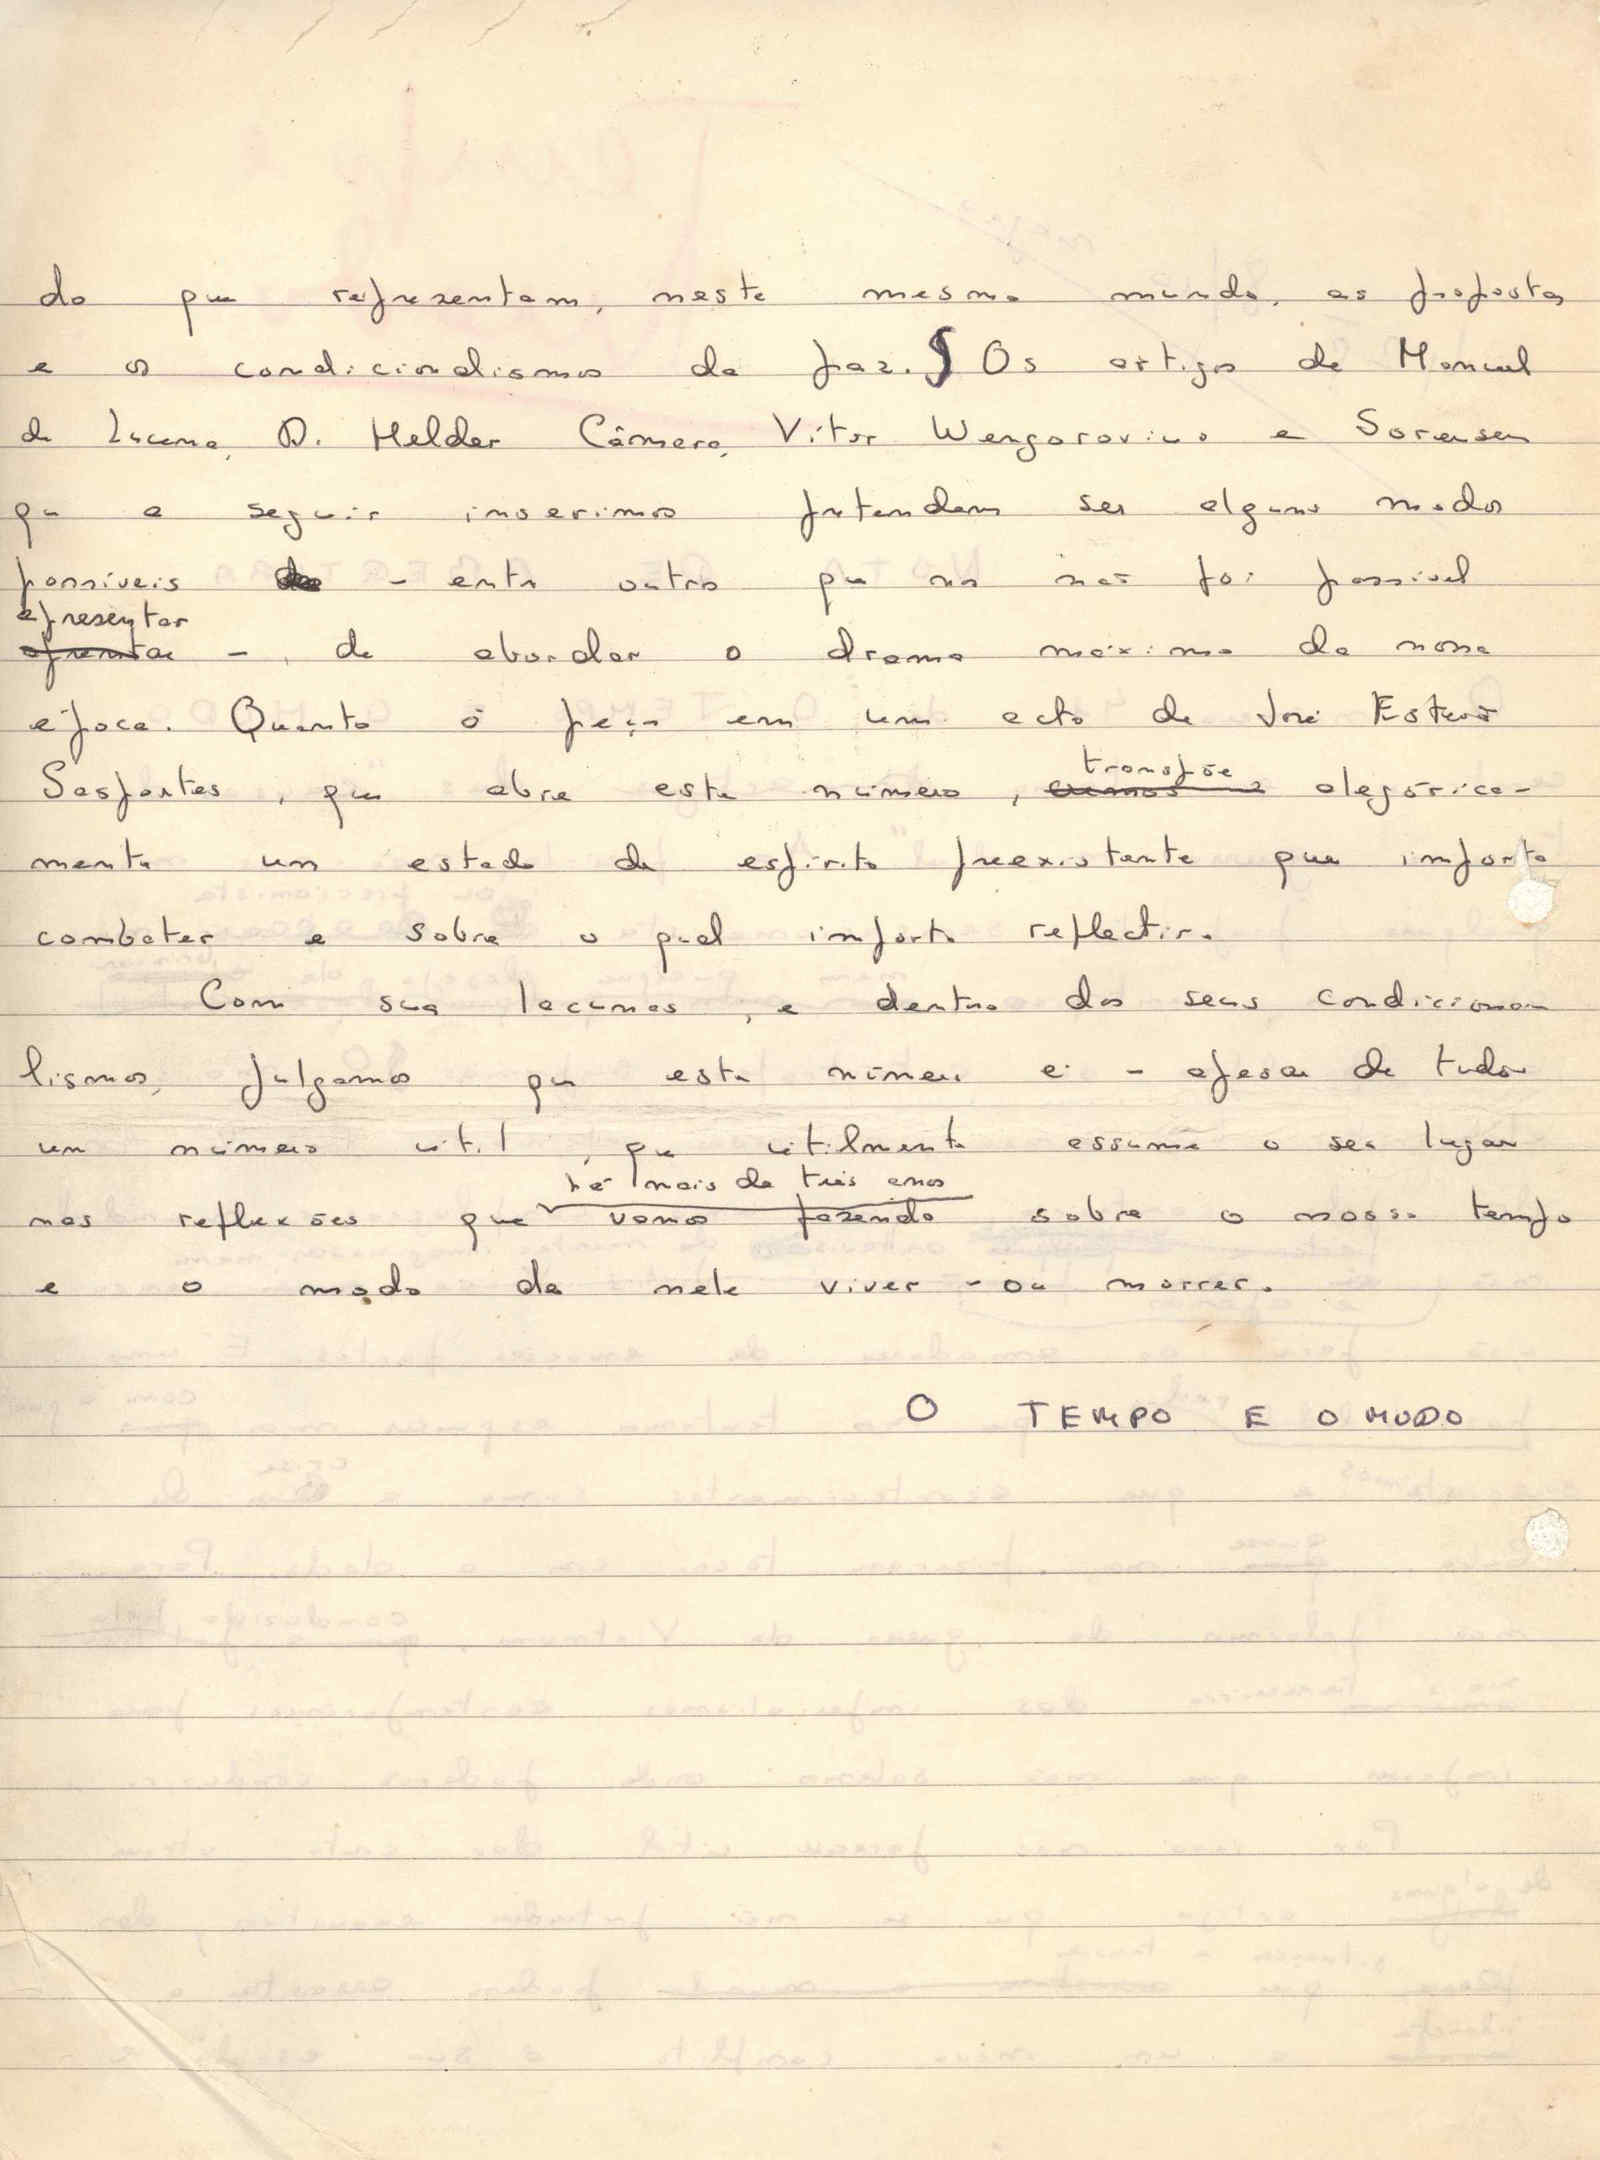 do que representam, neste mesmo mundo, as propostas
e os condicionalismos da paz. § Os artigos de Manuel
de Lucena, D. Helder Câmara, Vítor Wengorovius e Sorensen
que a seguir inserimos pretendem ser alguns modos
possíveis - entre outros que nos não foi possível
apresentar
-, de abordar o drama máximo da nossa
época. Quanto à peça em um acto de José Estevão
transpõe
Sasportes, que abre este número, alegórica-
mente um estado de espírito preexistente que importa
combater e sobre o qual importa reflectir.
Com suas lacunas, e dentro dos seus condiciona
lismos, julgamos que este número é - apesar de tudo
um número útil, que utilmente assume o seu lugar
há mais de três anos
nas reflexões que vamos fazendo sobre o nosso tempo
e o modo de nele viver - ou morrer.
O TEMPO E O MODO